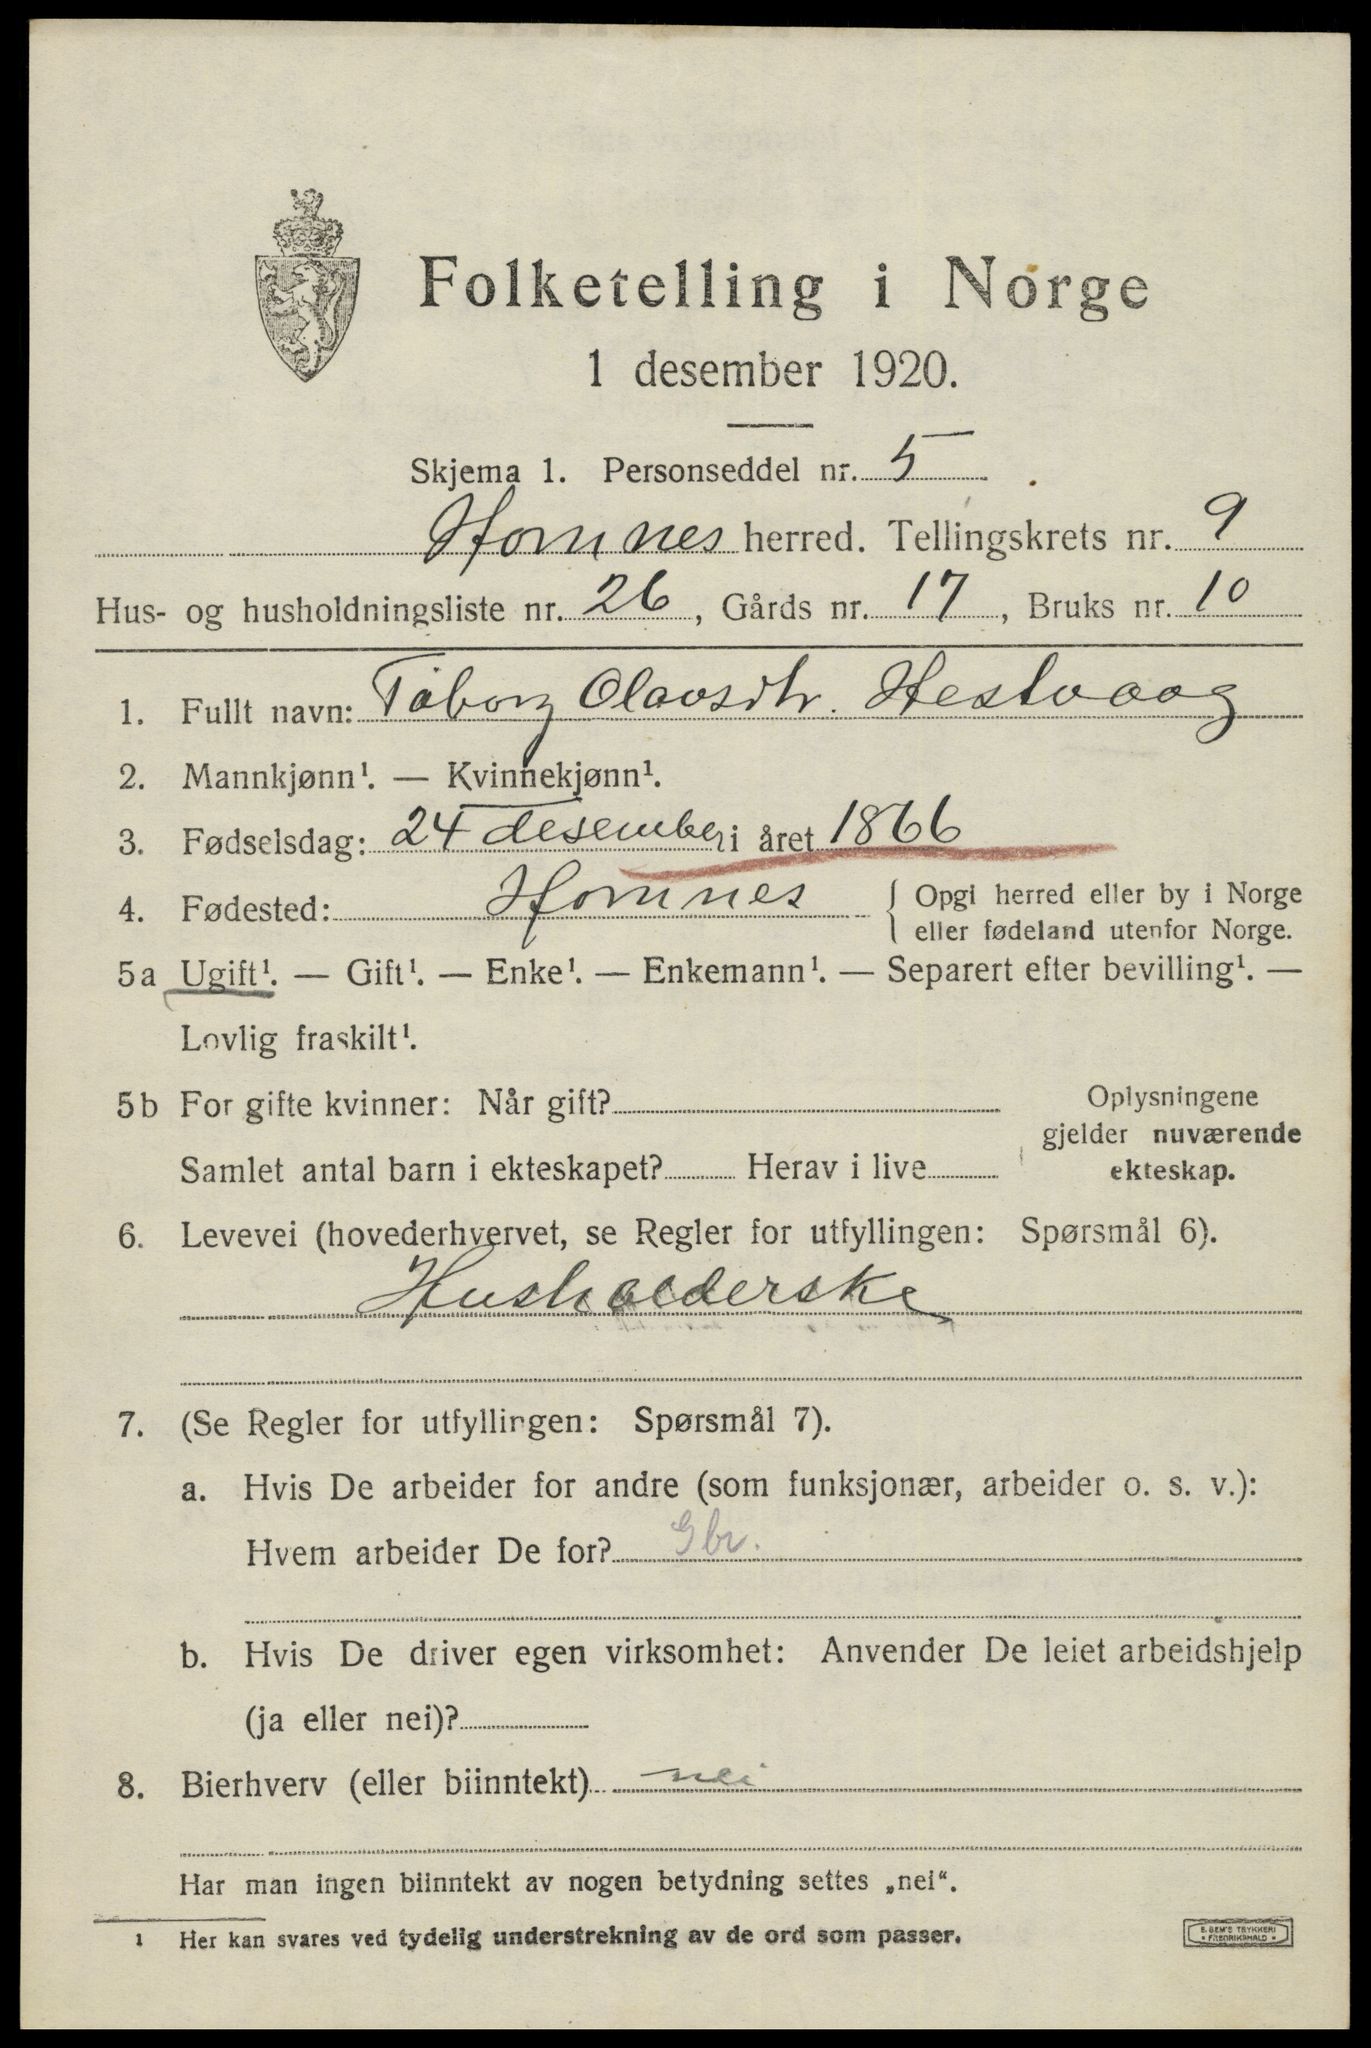 Folketelling i Norge
1 desember 1920.
Skjema 1. Personseddel nr. 5
Hornnes herred. Tellingskrets nr. 9
Hus- og husholdningsliste nr. 26, Gårds nr. 17, Bruks nr. 10
1. Fullt navn: Tåborg Olavsdtr. Hestvaag
2. Mannkjønn¹. — Kvinnekjønn¹.
3. Fødselsdag: 24 desember i året 1866
4. Fødested: Hornnes { Opgi herred eller by i Norge
eller fødeland utenfor Norge.
5a Ugift¹. — Gift¹. — Enke¹. — Enkemann¹. — Separert efter bevilling¹. —
Lovlig fraskilt¹.
5b For gifte kvinner: Når gift?
Samlet antal barn i ekteskapet? Herav i live
Oplysningene
gjelder nuværende
ekteskap.
6. Levevei (hovederhvervet, se Regler for utfyllingen: Spørsmål 6).
Husholderske
7. (Se Regler for utfyllingen: Spørsmål 7).
a. Hvis De arbeider for andre (som funksjonær, arbeider o. s. v.):
Hvem arbeider De for? Gbr.
b. Hvis De driver egen virksomhet: Anvender De leiet arbeidshjelp
(ja eller nei)?
8. Bierhverv (eller biinntekt) nei
Har man ingen biinntekt av nogen betydning settes „nei“.
¹ Her kan svares ved tydelig understrekning av de ord som passer.
E. SEM'S TRYKKERI
* FREDRIKSHALD *